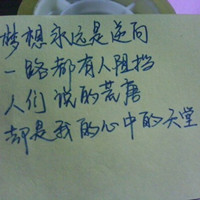 梦想永远是逆向
一路都有人阻挡
人们说的荒唐
却是我的心中的天堂